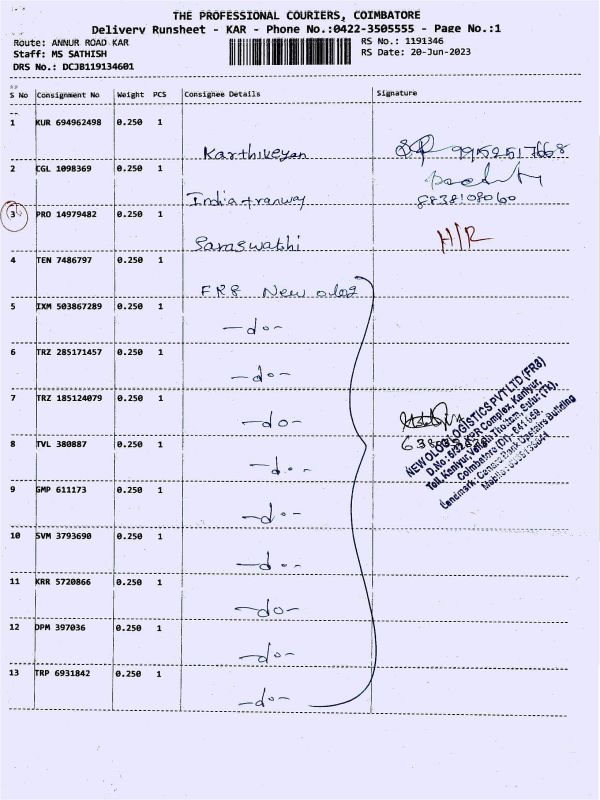 THE PROFESSIONAL COURIERS, COIMBATORE
Delivery Runsheet - KAR - Phone No.:0422-3505555 - Page No.:1
Route: ANNUR ROAD KAR
RS No.: 1191346
Staff: MS SATHISH
RS Date: 20-Jun-2023
DRS No.: DCJB119134601
S No Consignment No Weight PCS Consignee Details Signature
1 KUR 694962498 0.250 1
Karthikeyan 9952517668
2 CGL 1098369 0.250 1
India tranway 8838108060
3 PRO 14979482 0.250 1
Saraswathi H/R
4 TEN 7486797 0.250 1
FR8 New
5 IXM 503867289 0.250 1
-do-
6 TRZ 285171457 0.250 1
-do-
7 TRZ 185124079 0.250 1
-do-
8 TVL 380887 0.250 1
-do-
9 GMP 611173 0.250 1
-do-
10 SVM 3793690 0.250 1
-do-
11 KRR 5720866 0.250 1
-do-
12 DPM 397036 0.250 1
-do-
13 TRP 6931842 0.250 1
-do-
NEWOLOGISTICS PVT LTD (FR8)
D.No: 5/32, KGR Complex, Kaniyur,
Toll, Kaniyur, Thottam, Sulur (Tk),
Coimbatore (Dt) - 641 659.
Landmark: Canara Bank Upstairs Building
Mobile: